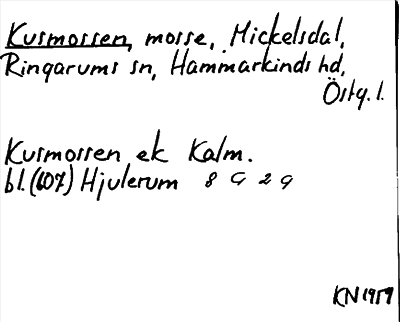 Kusmossen, mosse, Mickelsdal,
Ringarums sn, Hammarkinds hd,
Östg. l.
Kusmossen ek Kalm.
bl. (607) Hjulerum 8 G 2 g
KN 1959